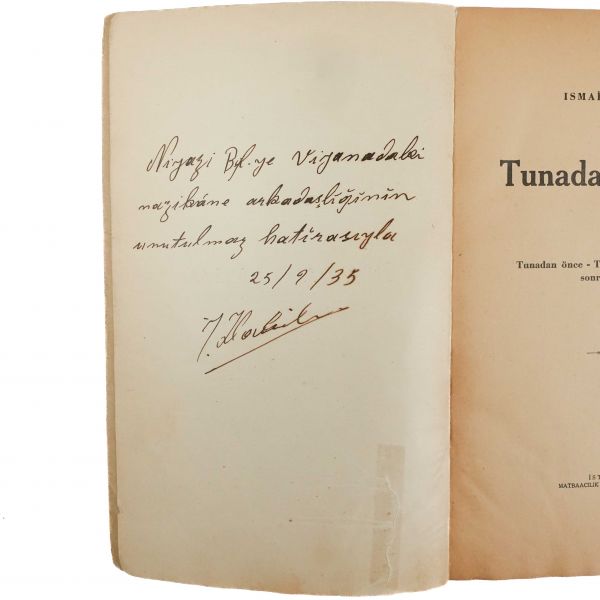 Niyazi Bf. ye Viyanadaki
nazikâne arkadaşlığının
unutulmaz hatirasıyla
25/9/35
I. Habib
ISMAİ
Tunada
Tunadan önce - T
sonr
İST
MATBAACILIK